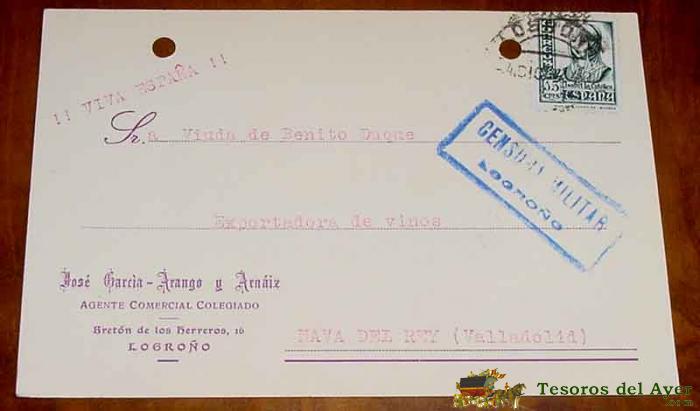 !! VIVA ESPAÑA !!
LOGROÑO
15
CTS
Isabel la Católica
ESPAÑA
Sr.a Viuda de Benito Duque
CENSURA MILITAR
LOGROÑO
Exportadora de vinos
José García-Arango y Arnáiz
AGENTE COMERCIAL COLEGIADO
Bretón de los Herreros, 16
LOGROÑO
NAVA DEL REY (Valladolid)
Tesoros del Ayer
.com